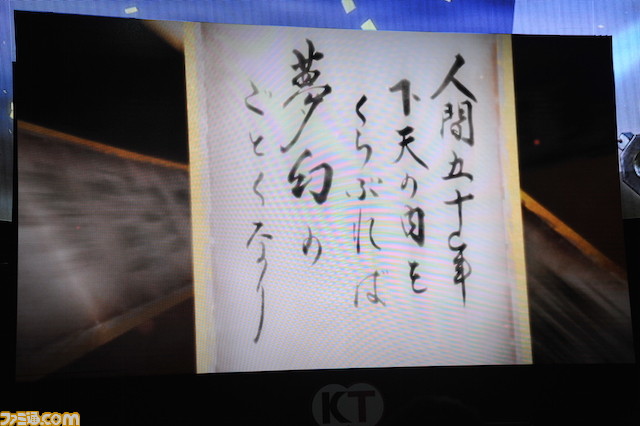 人間五十年
下天の内を
くらぶれば
夢幻の
ごとくなり
KT
ファミ通.com